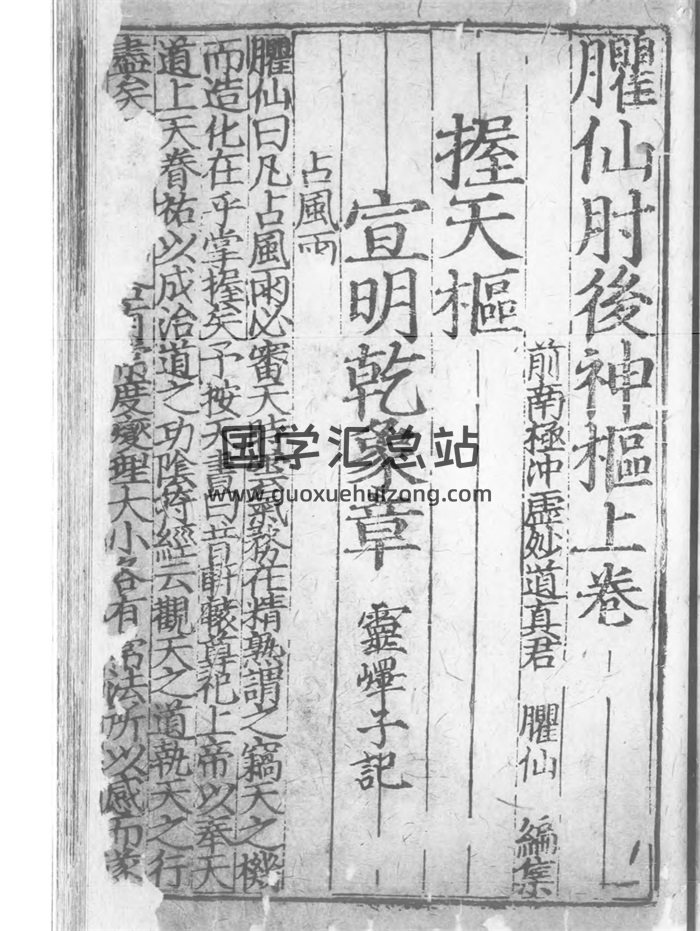 臞仙肘後神樞上卷
前南極冲虛妙道真君 臞仙 編集
握天樞
宣明乾象章 靈嶧子記
占風雨
臞仙曰凡占風雨必審天 氣務在精熟謂之竊天之機
而造化在乎掌握矣予按天書曰昔軒轅尊祀上帝以奉天
道上天眷祐以成治道之功陰符經云觀天之道執天之行
盡矣 度變理大小各有常法所以感而
国学汇总站
www.guoxuehuizong.com